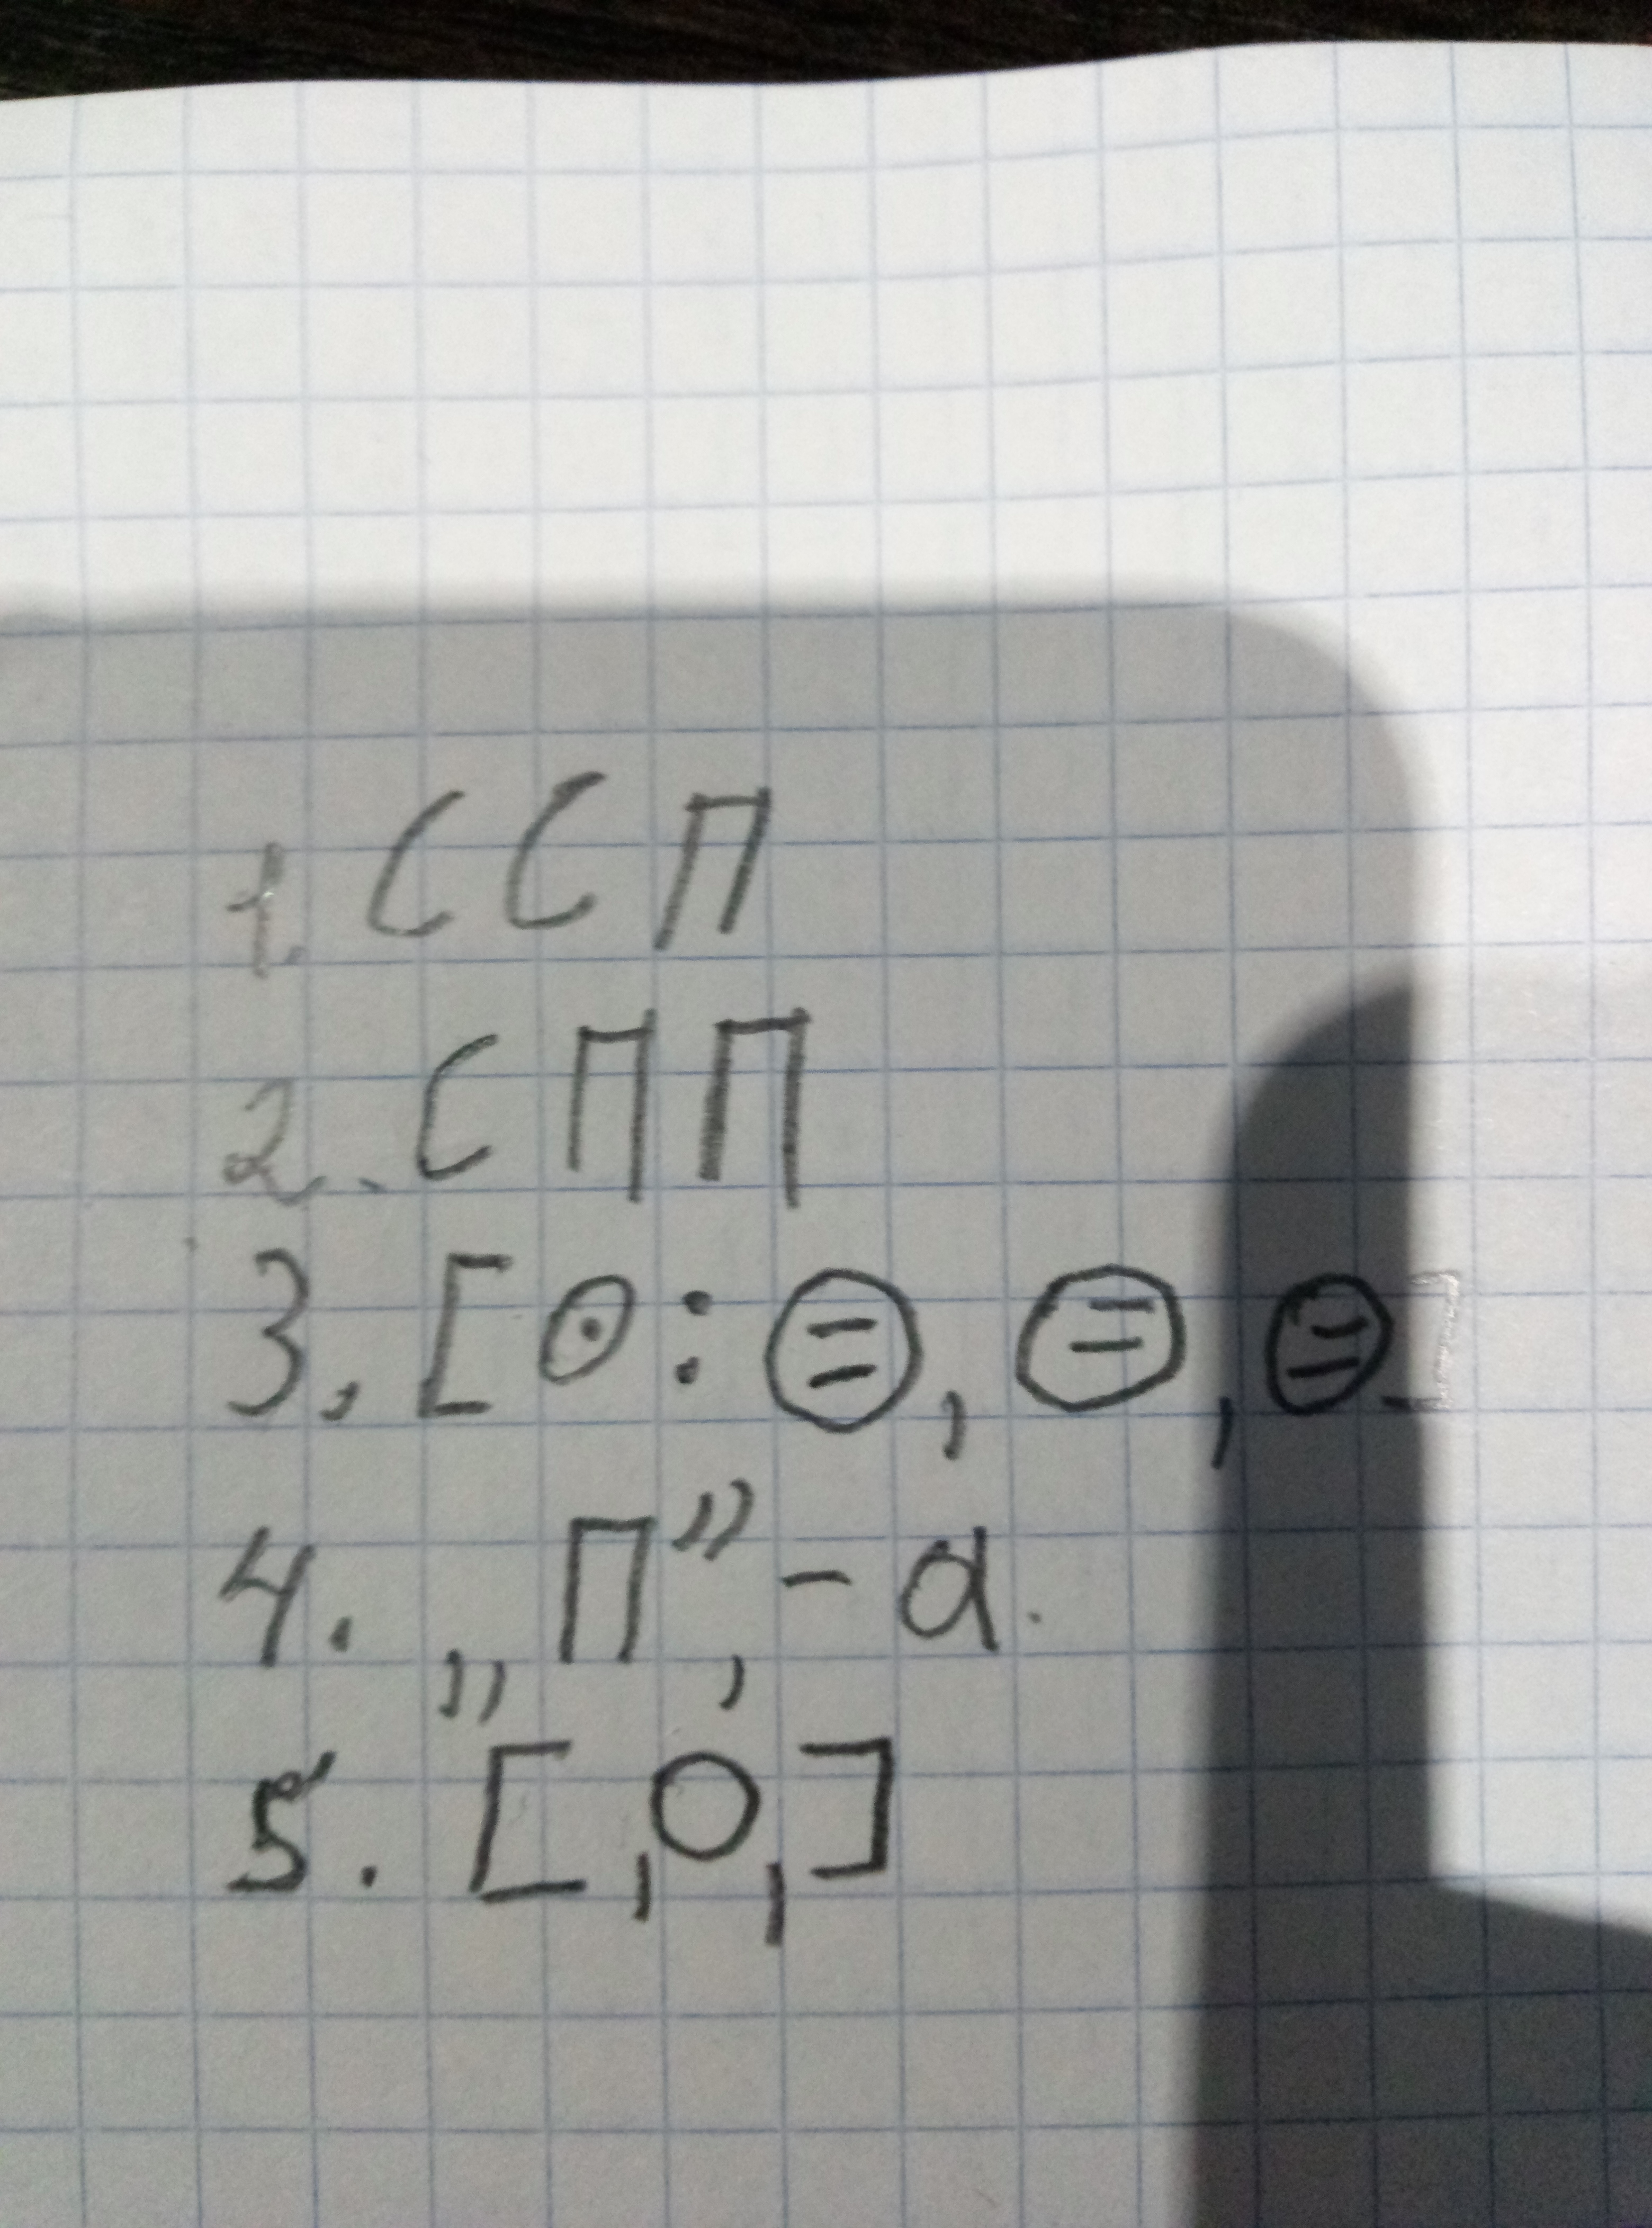 1. ССП
2. СПП
3. [⊙: ⊜, ⊜, ⊜]
4. „П”, - а.
5. [, О, ]